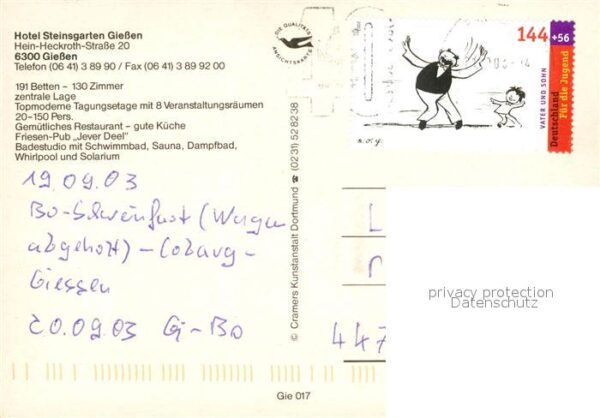 Hotel Steinsgarten Gießen
Hein-Heckroth-Straße 20
6300 Gießen
Telefon (06 41) 3 89 90 / Fax (06 41) 3 89 92 00
191 Betten – 130 Zimmer
zentrale Lage
Topmoderne Tagungsetage mit 8 Veranstaltungsräumen
20–150 Pers.
Gemütliches Restaurant – gute Küche
Friesen-Pub „Jever Deel"
Badestudio mit Schwimmbad, Sauna, Dampfbad,
Whirlpool und Solarium
DIE QUALITÄTS
ANSICHTSKARTE
19.09.03
Bo-Schweinfurt (Wagen
abgeholt) – Coburg –
Giessen
20.09.03 Gi-Bo
© Cramers Kunstanstalt Dortmund ☎ (02 31) 52 82 38
144 +56
VATER UND SOHN
Deutschland
Für die Jugend
e.o.p.
447
privacy protection
Datenschutz
Gie 017